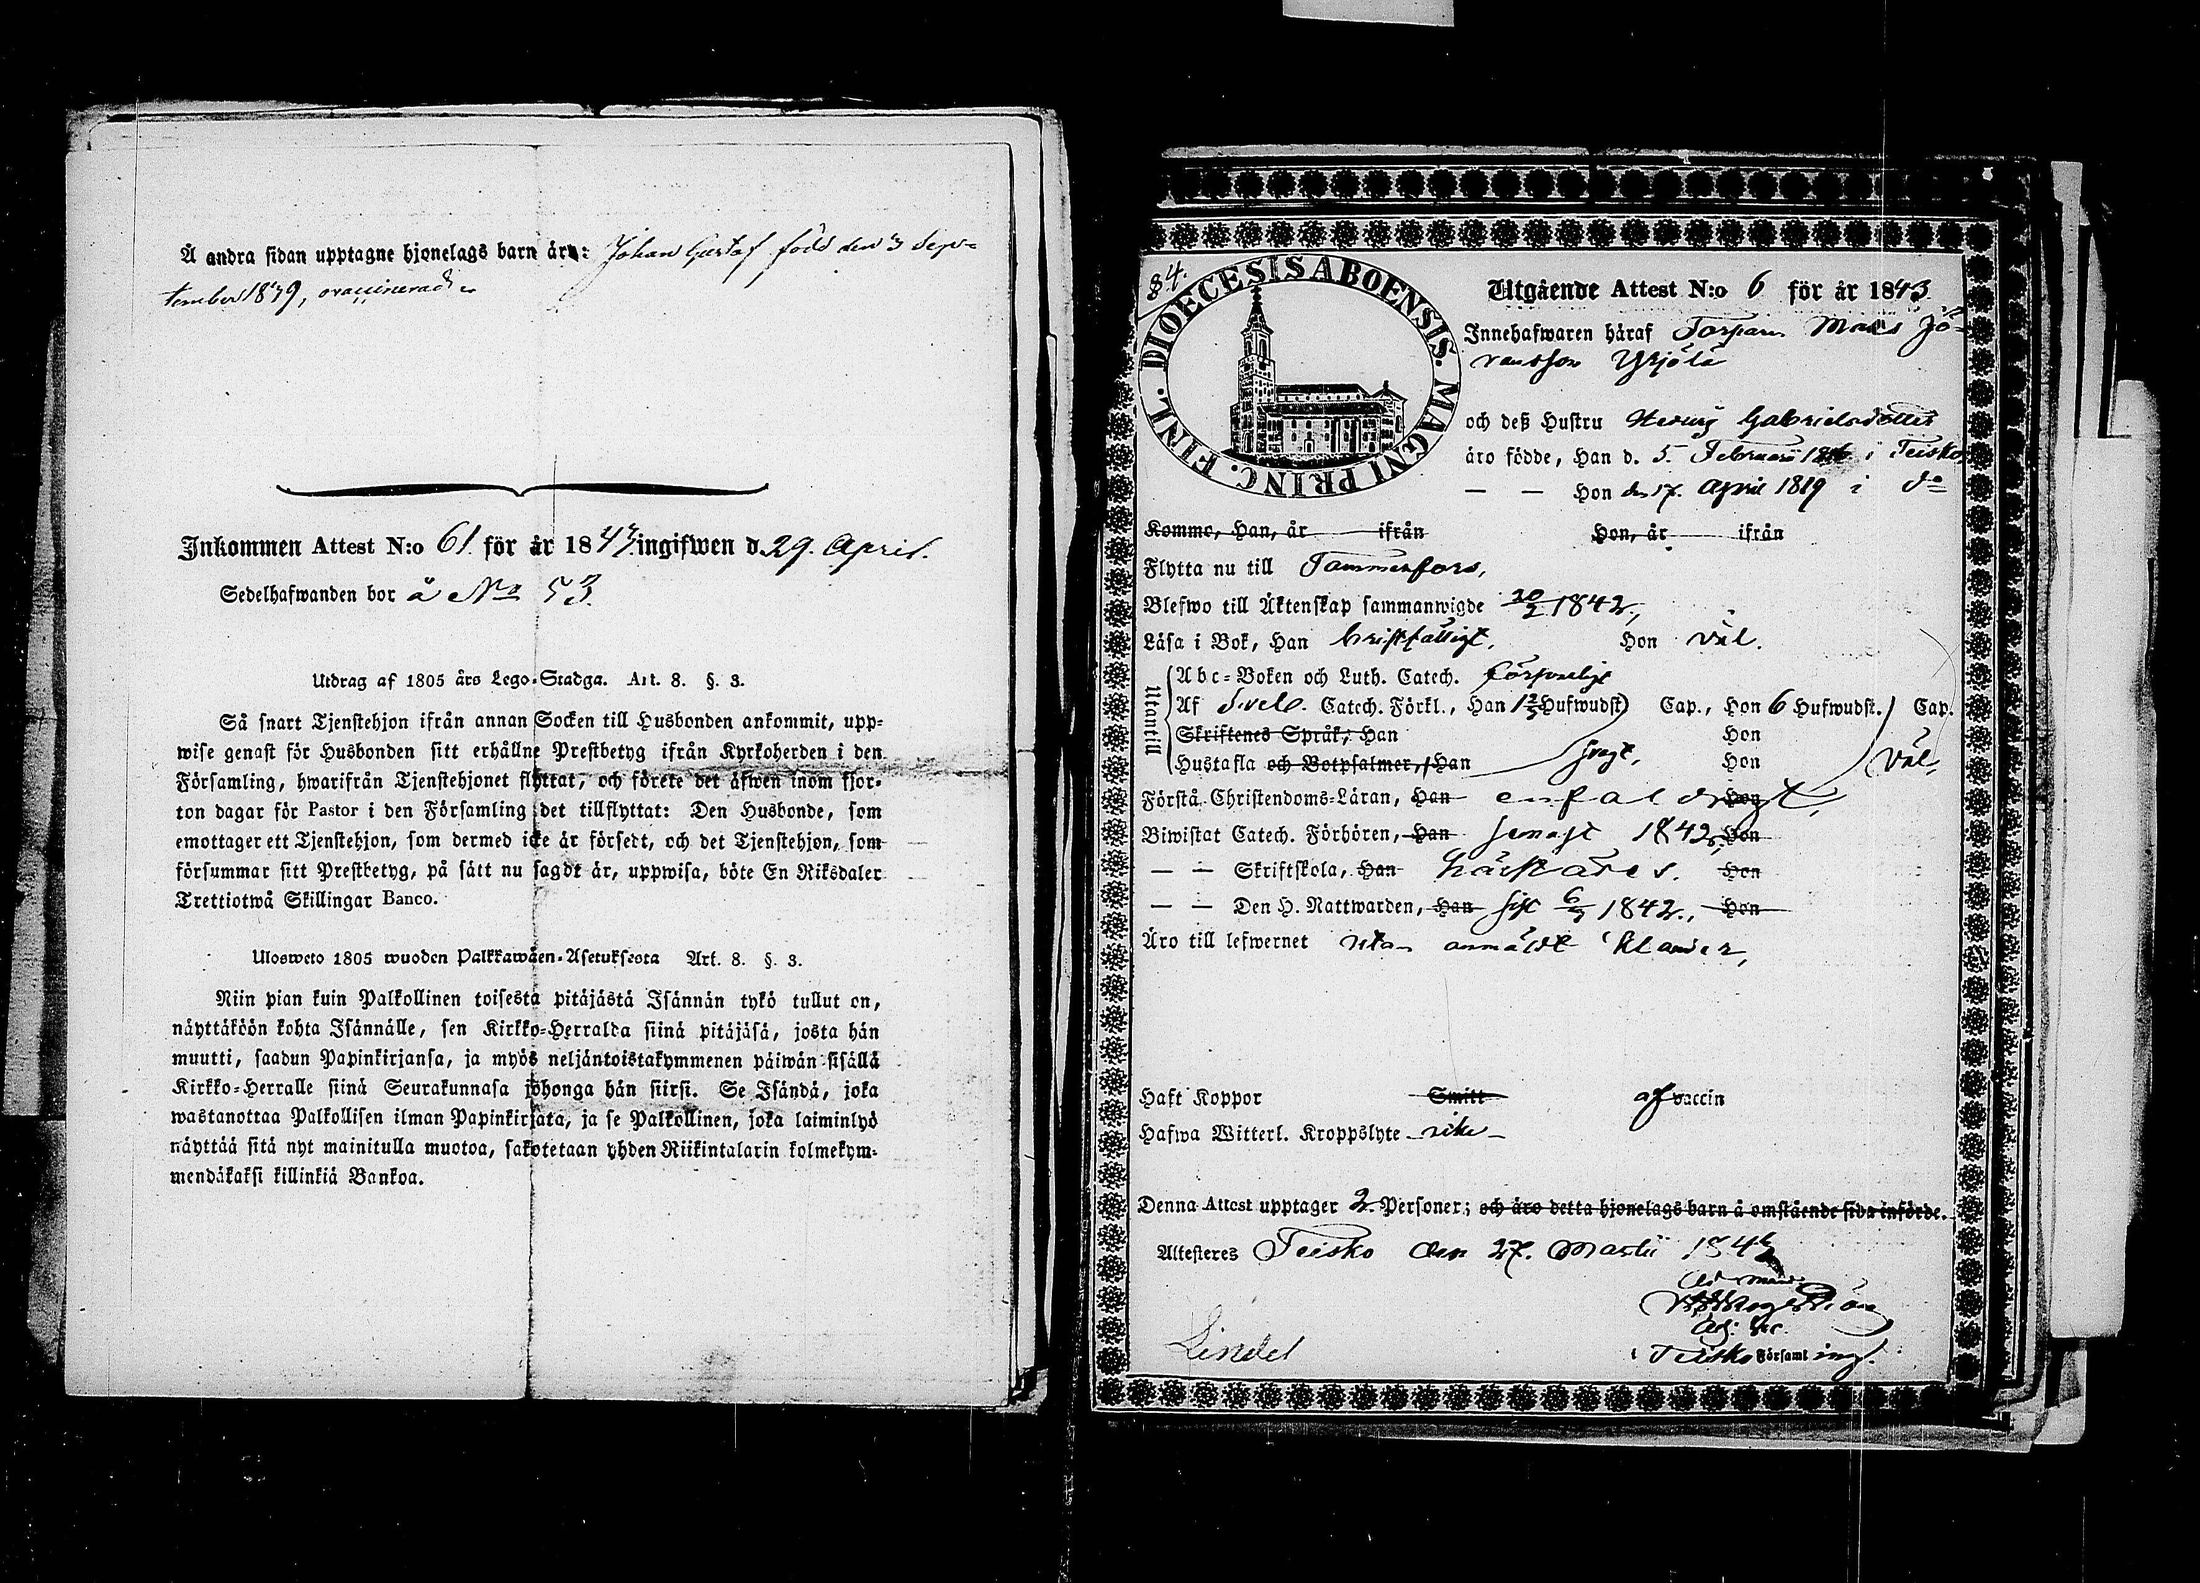 Å andra sidan upptagne hjonelags barn äro: Johan Gustaf född den 3 Sep-
tember 1839, ovaccinerad
Inkommen Attest N:o 61 för år 1843 ingifwen d. 29. April.
Sedelhafwanden bor å No 53.
Utdrag af 1805 års Lego-Stadga. Art. 8. §. 3.
Så snart Tjenstehjon ifrån annan Socken till Husbonden ankommit, upp-
wise genast för Husbonden sitt erhållne Prestbetyg ifrån Kyrkoherden i den
Församling, hwarifrån Tjenstehjonet flyttat, och förete det äfwen inom fjor-
ton dagar för Pastor i den Församling det tillflyttat: Den Husbonde, som
emottager ett Tjenstehjon, som dermed icke är försedt, och det Tjenstehjon, som
försummar sitt Prestbetyg, på sätt nu sagdt är, uppwisa, böte En Riksdaler
Trettiotwå Skillingar Banco.
Ulosweto 1805 wuoden Palkkawäen-Asetuksesta Art. 8. §. 3.
Niin pian kuin Palkollinen toisesta pitäjästä Isännän tykö tullut on,
näyttäköön kohta Isännälle, sen Kirkko-Herralda siinä pitäjäsä, josta hän
muutti, saadun Papinkirjansa, ja myös neljäntoistakymmenen päiwän sisällä
Kirkko-Herralle siinä Seurakunnasa johonga hän siirsi. Se Isändä, joka
wastanottaa Palkollisen ilman Papinkirjata, ja se Palkollinen, joka laiminlyö
näyttää sitä nyt mainitulla muotoa, sakotetaan yhden Riikintalarin kolmekym-
mendäkaksi killinkiä Bankoa.
§ 4.
DIOECESIS ABOENSIS. MAGNI PRINC. FINL.
Utgående Attest N:o 6 för år 1843
Innehafwaren häraf Torparen Mats Jö-
ransson Yrjölä
och deß Hustru Hedvig Gabrielsdotter
äro födde, Han d. 5. Februarii i Teisko
— — Hon den 17. April 1819 i do
Komme, Han, år ifrån Hon, år ifrån
Flytta nu till Tammerfors,
Blefwo till Äktenskap sammanwigde 20/2 1842,
Läsa i Bok, Han bristfälligt. Hon väl.
Utantill
Abc-Boken och Luth. Catech. försvarligt
Af Svel. Catech. Förkl., Han Hufwudst Cap., Hon 6 Hufwudst. Cap.
Skriftenes Språk, Han Hon
Hustafla och Botpsalmer, Han svagt, Hon väl,
Förstå Christendoms-Läran, Han enfaldigt, Hon
Biwistat Catech. Förhören, Han senast 1842, Hon
— — Skriftskola, Han härstädes. Hon
— — Den H. Nattwarden, Han sist 1842., Hon
Äro till lefwernet utan anmäldt klander,
Haft Koppor Smitt af vaccin
Hafwa Witterl. Kroppslyte icke
Denna Attest upptager 2 Personer; och äro detta hjonelags barn å omstående sida införde.
Attesteres Teisko den 27. Martii
Adj:
i Teisko Församling.
Lindel